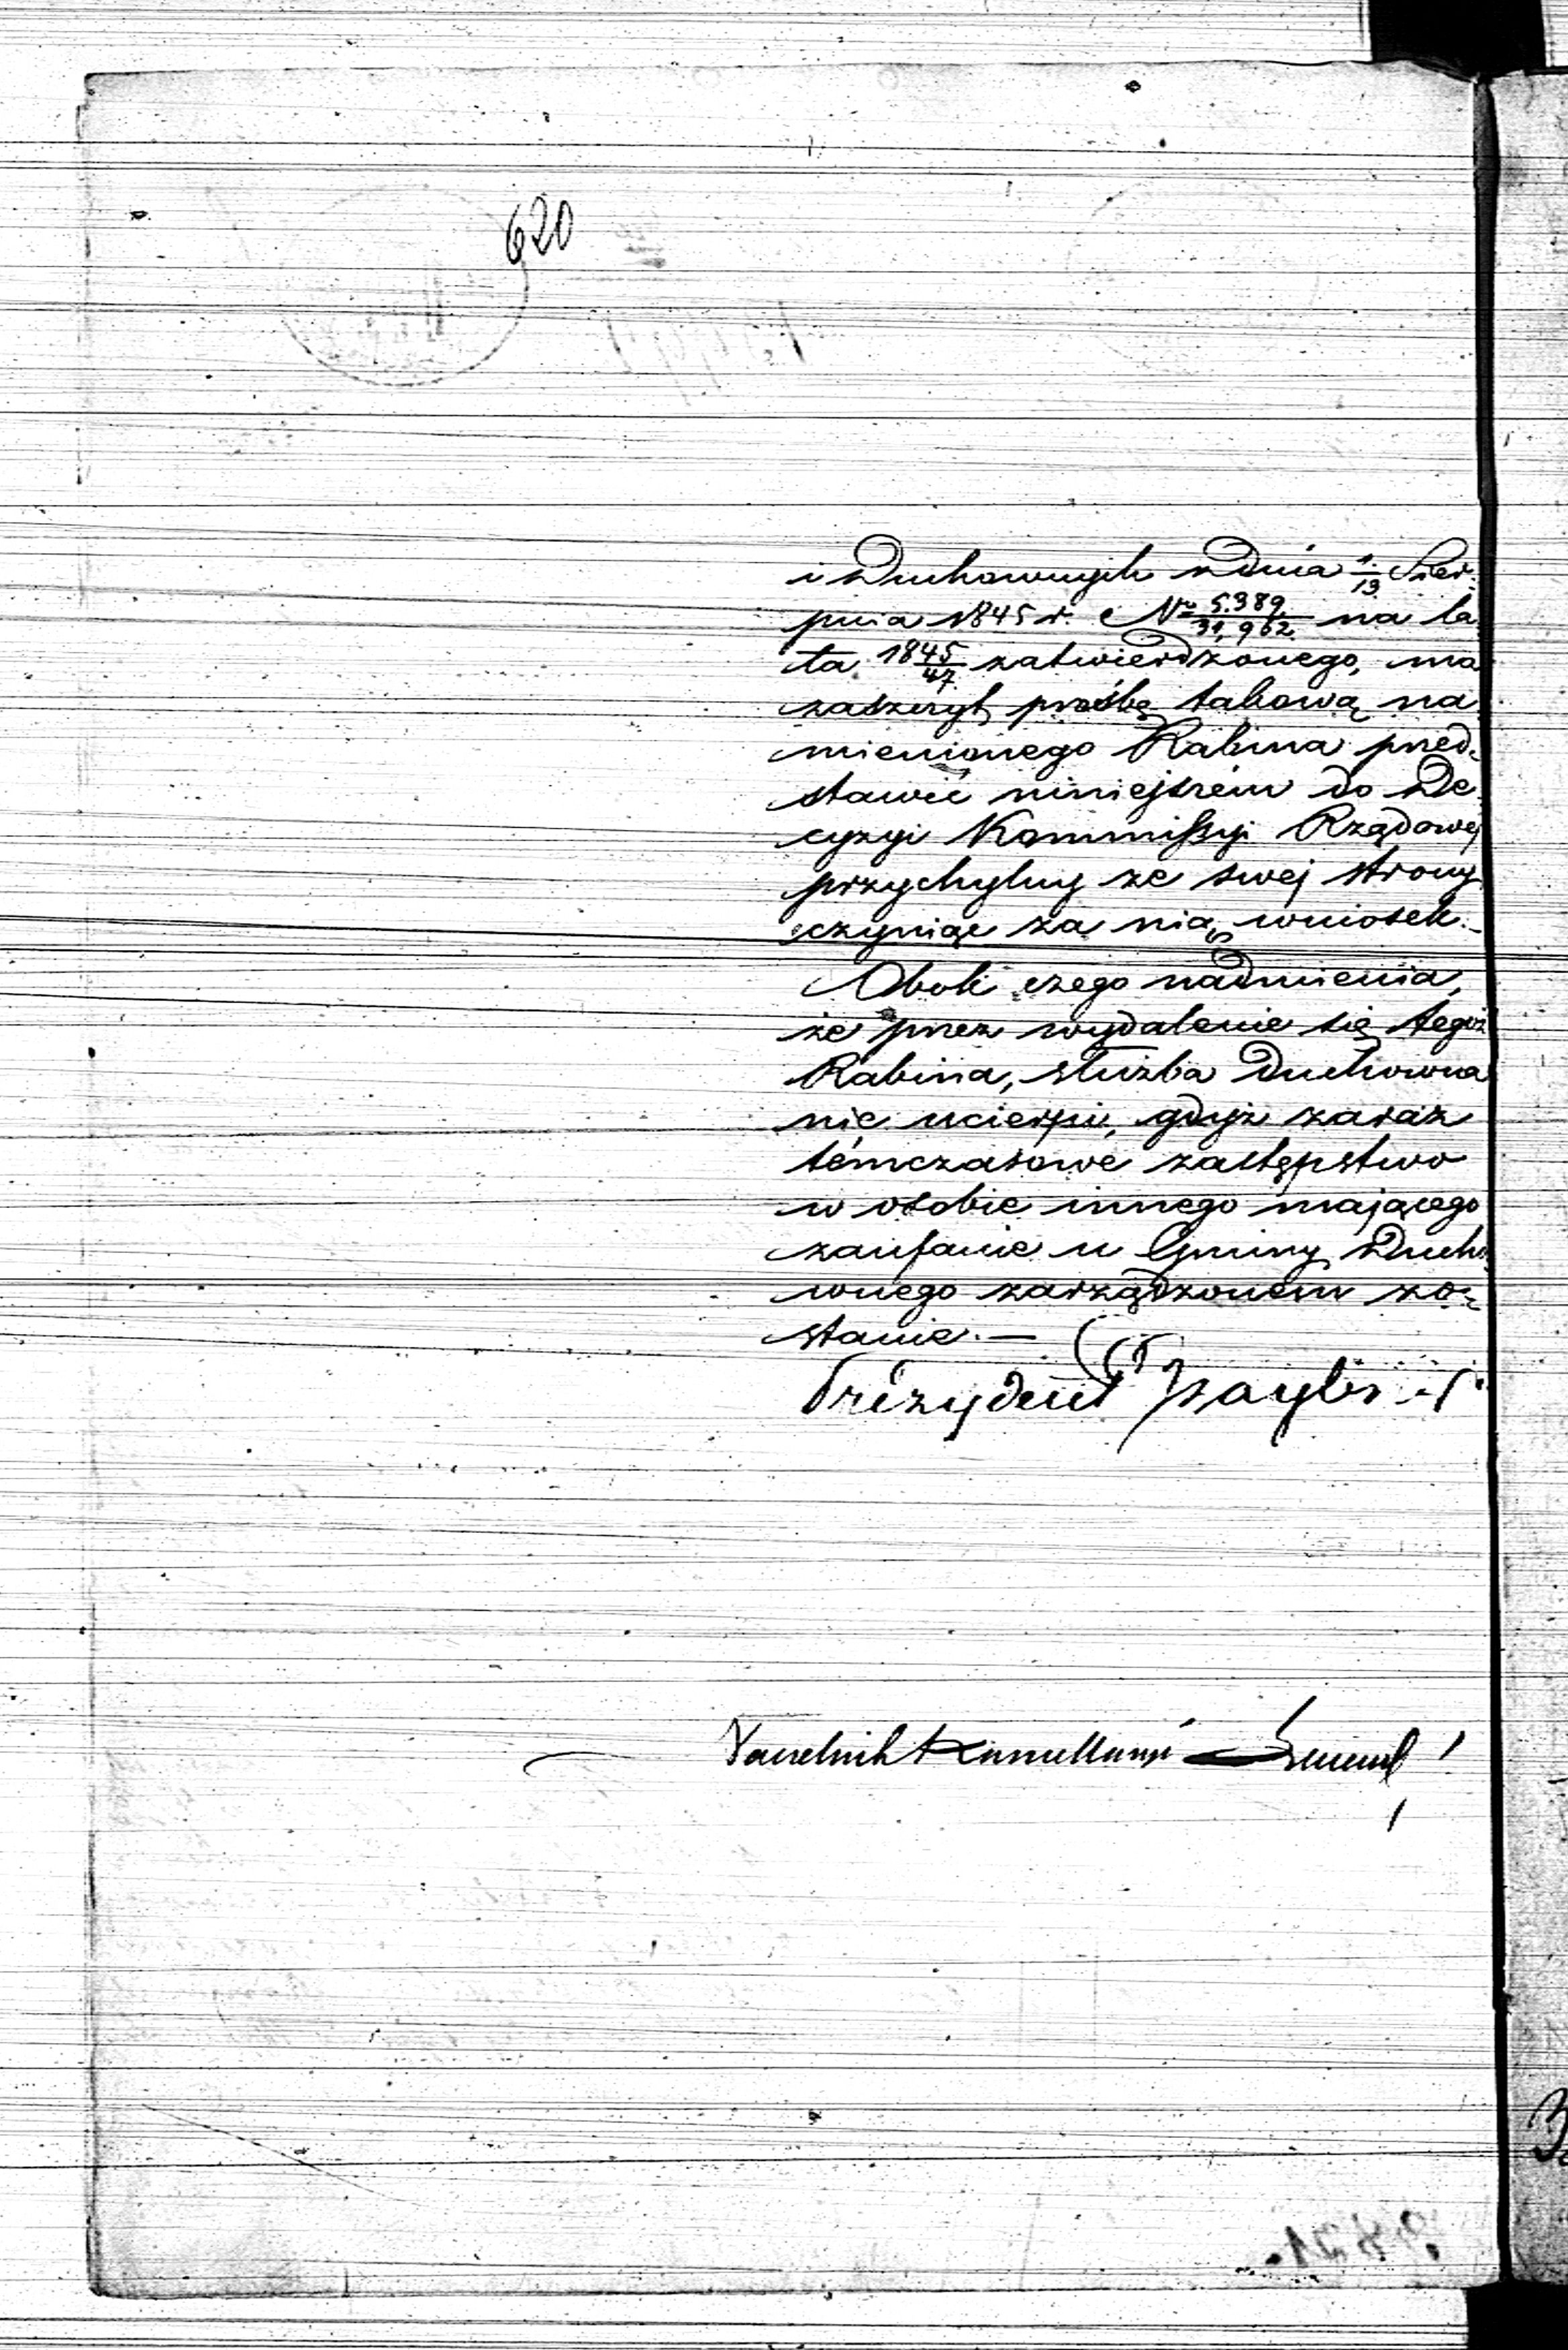 620
i Duchownych z dnia 1/13 Sier-
pnia 1845 r. No 5.389/31,962 na la
ta 1845/47 zatwierdzonego, ma
zaszczyt prośbę takową na
mienionego Rabina przed-
stawić niniejszém do De
cyzyi Kommissyi Rządowej
przychylny ze swej strony
czyniąc za nią wniosek.
Obok czego nadmienia,
że przez wydalenie się tegoż
Rabina, służba Duchowna
nic ucierpi, gdyż zaraz
témczasowe zastępstwo
w osobie innego mającego
zaufanie u Gminy Ducho-
wnego zarządzonem zo-
stanie. —
Prezydent
Naczelnik Kancellaryi